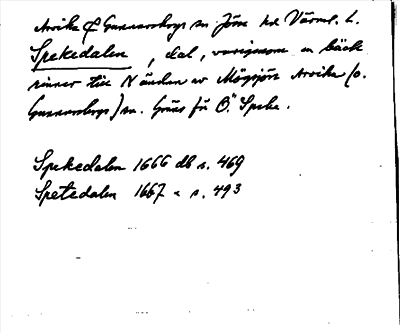 Arvika & Gunnarskogs sn Jösse hd Värml. l.
Spekedalen, dal, varigenom en bäck
rinner till N ändan av Mögsjön Arvika (o.
Gunnarskogs) sn. Gräns fr Ö. Speke.
Spekedalen 1666 db s. 469
Spetedalen 1667 " s. 493